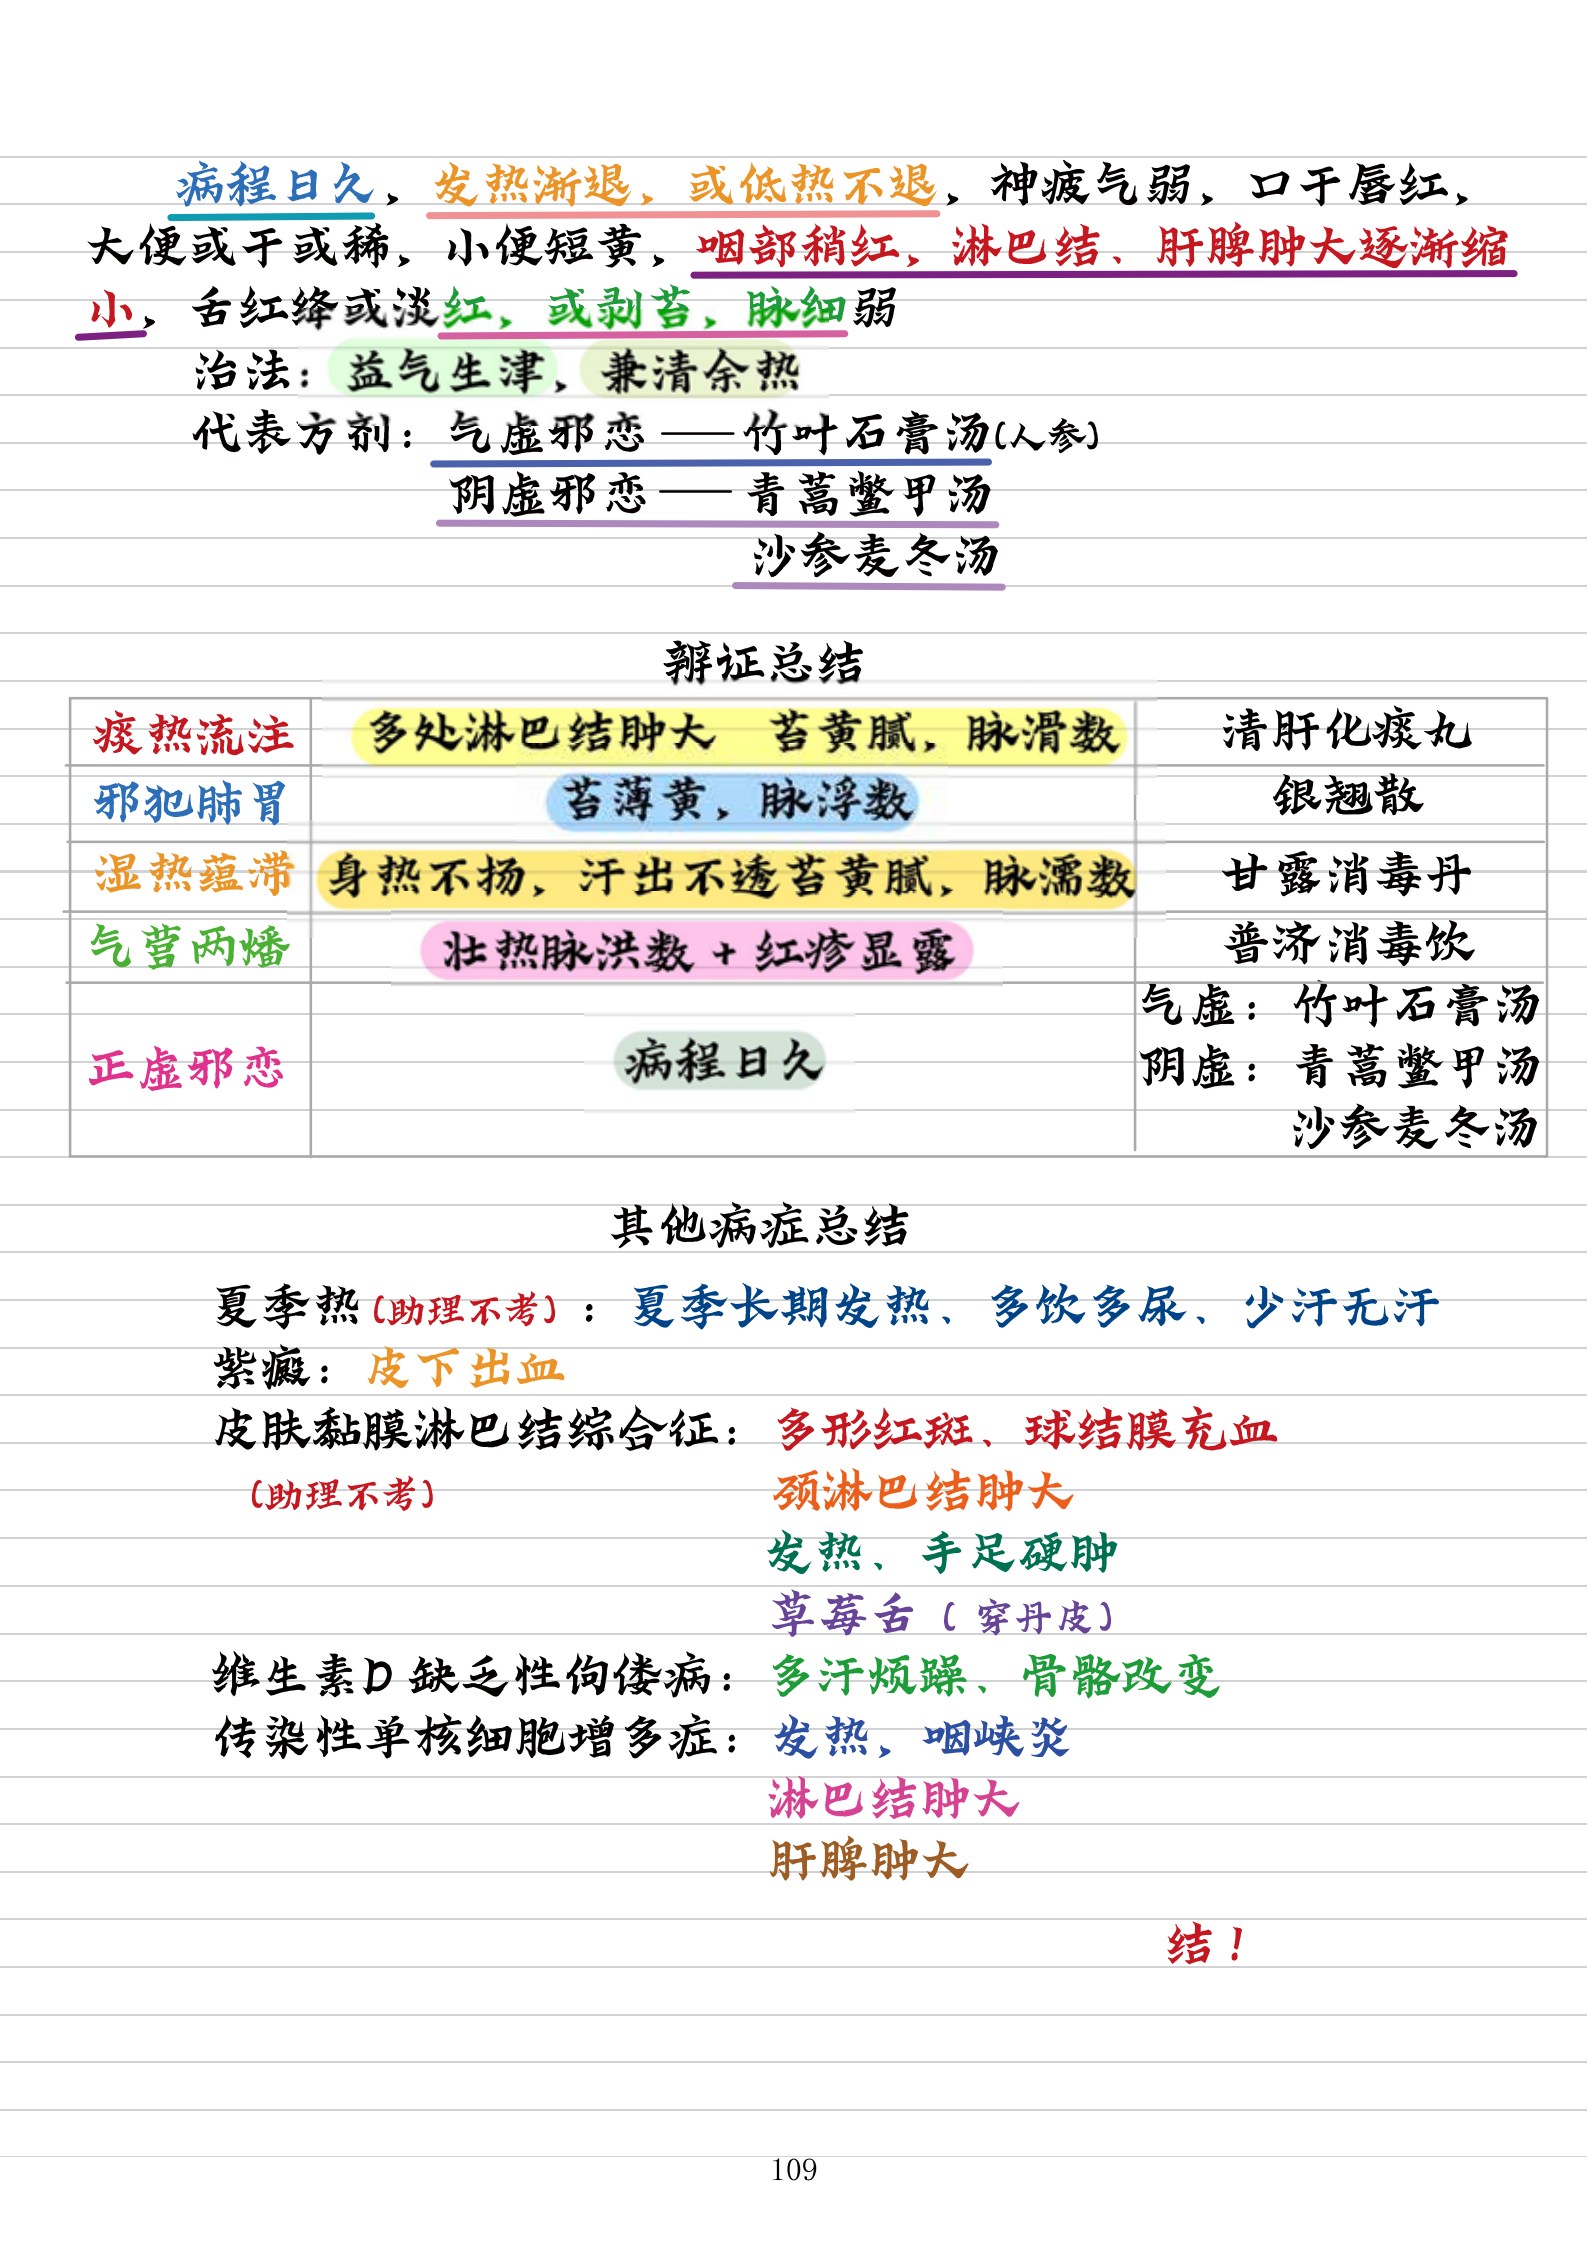 病程日久，发热渐退，或低热不退，神疲气弱，口干唇红，
大便或干或稀，小便短黄，咽部稍红，淋巴结、肝脾肿大逐渐缩
小，舌红绛或淡红，或剥苔，脉细弱
治法：益气生津，兼清余热
代表方剂：气虚邪恋——竹叶石膏汤(人参)
阴虚邪恋——青蒿鳖甲汤
沙参麦冬汤
辨证总结
痰热流注 多处淋巴结肿大 苔黄腻，脉滑数 清肝化痰丸
邪犯肺胃 苔薄黄，脉浮数 银翘散
湿热蕴滞 身热不扬，汗出不透苔黄腻，脉濡数 甘露消毒丹
气营两燔 壮热脉洪数+红疹显露 普济消毒饮
正虚邪恋 病程日久 气虚：竹叶石膏汤
阴虚：青蒿鳖甲汤
沙参麦冬汤
其他病症总结
夏季热(助理不考)：夏季长期发热、多饮多尿、少汗无汗
紫癜：皮下出血
皮肤黏膜淋巴结综合征：多形红斑、球结膜充血
(助理不考) 颈淋巴结肿大
发热、手足硬肿
草莓舌(穿丹皮)
维生素D缺乏性佝偻病：多汗烦躁、骨骼改变
传染性单核细胞增多症：发热，咽峡炎
淋巴结肿大
肝脾肿大
结！
109